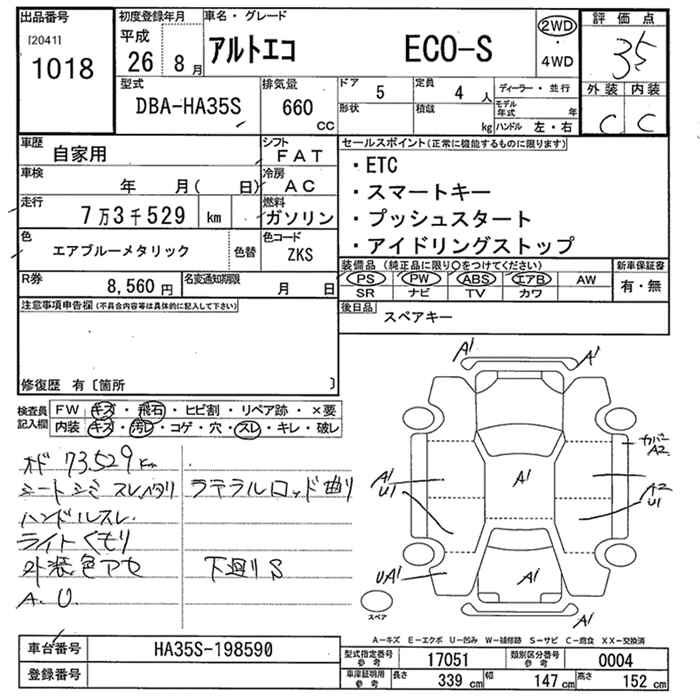 出品番号
[2041]
1018
初度登録年月
平成
26年8月
車名・グレード
アルトエコ ECO-S
2WD
・
4WD
評価点
3.5
外装 内装
C C
型式
DBA-HA35S
排気量
660
cc
ドア
5
定員
4人
形状
積載
kg
ディーラー・並行
モデル年式 年
ハンドル 左・右
車歴
自家用
シフト
FAT
車検
年 月( 日)
冷房
AC
走行
7万3千529 km
燃料
ガソリン
色
エアブルーメタリック
色替
色コード
ZKS
R券
8,560円
名変通知期限
月 日
セールスポイント(正常に機能するものに限ります)
・ETC
・スマートキー
・プッシュスタート
・アイドリングストップ
装備品 (純正品に限り〇をつけてください)
PS PW ABS エアB AW
SR ナビ TV カワ
新車保証書
有・無
後日品
スペアキー
注意事項申告欄(不具合内容等は具体的に記入して下さい)
修復歴 有〔箇所 〕
検査員記入欄
FW キズ・飛石・ヒビ割・リペア跡・×要
内装 キズ・汚レ・コゲ・穴・スレ・キレ・破レ
オド 73.529km
シートシミ スレ
ラテラルロッド曲り
ハンドルスレ
ライトくもり
外装色アセ
下廻りS
A.U.
A1
A1
カバーA2
A1
U1
A1
A2
U1
UA1
A1
A1
スペア
A-キズ E-エクボ U-凹み W-補修跡 S-サビ C-腐食 XX-交換済
車台番号
HA35S-198590
登録番号
型式指定番号
参考
17051
類別区分番号
参考
0004
車庫証明用
参考
長さ 339cm
幅 147cm
高さ 152cm